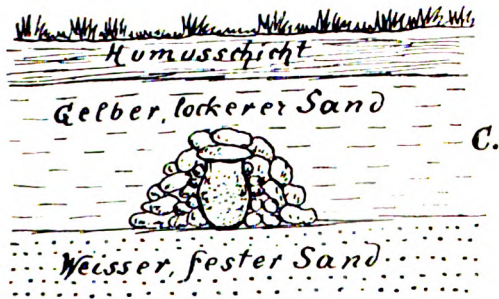 Humusschicht
Gelber, lockerer Sand
C.
Weisser, fester Sand